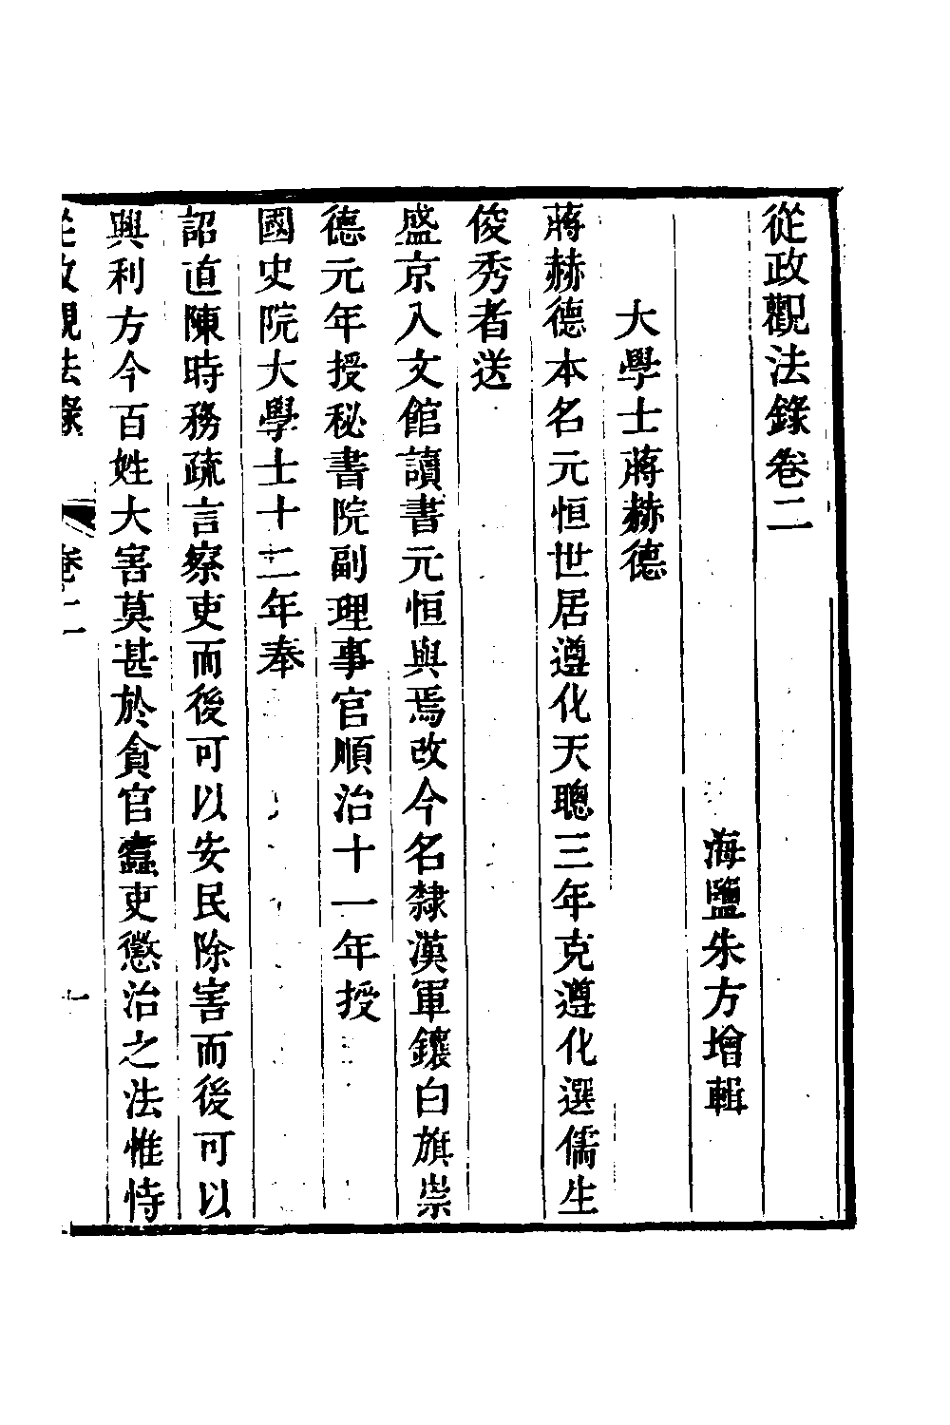 從政觀法錄卷二
海鹽朱方增輯
大學士蔣赫德
蔣赫德本名元恒世居遵化天聰三年克遵化選儒生
俊秀者送
盛京入文館讀書元恒與焉改今名隸漢軍鑲白旗崇
德元年授秘書院副理事官順治十一年授
國史院大學士十二年奉
詔道陳時務疏言察吏而後可以安民除害而後可以
興利方今百姓大害莫甚於貪官蠹吏懲治之法惟恃
從政觀法錄 卷二 一